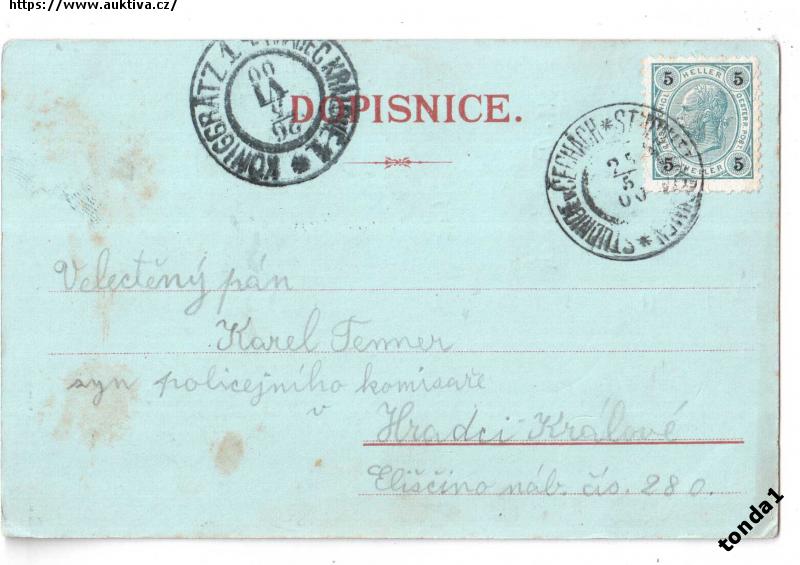 https://www.auktiva.cz/
KÖNIGGRÄTZ 1
26
5
VI
00
DOPISNICE.
5 5
HELLER
5 5
HELLER
ČECHÁCH * ST
STUDNICE
25
5
00
Velectěný pán
Karel Tenner
syn policejního komisaře
v
Hradci Králové
Eliščino náb. čís. 280.
tonda1